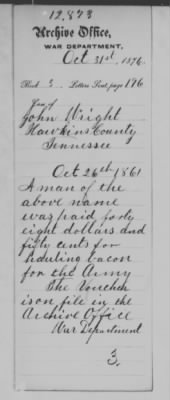 12,873
Archive Office,
WAR DEPARTMENT,
Oct 31st, 1876.
Book 3, Letters Sent, page 176
John Wright
Hawkins County
Tennessee
Oct 26th 1861
A man of the
above name
was paid forty
eight dollars and
fifty cents for
hauling bacon
for the Army
The Voucher
is on file in the
Archive Office
War Department
3.